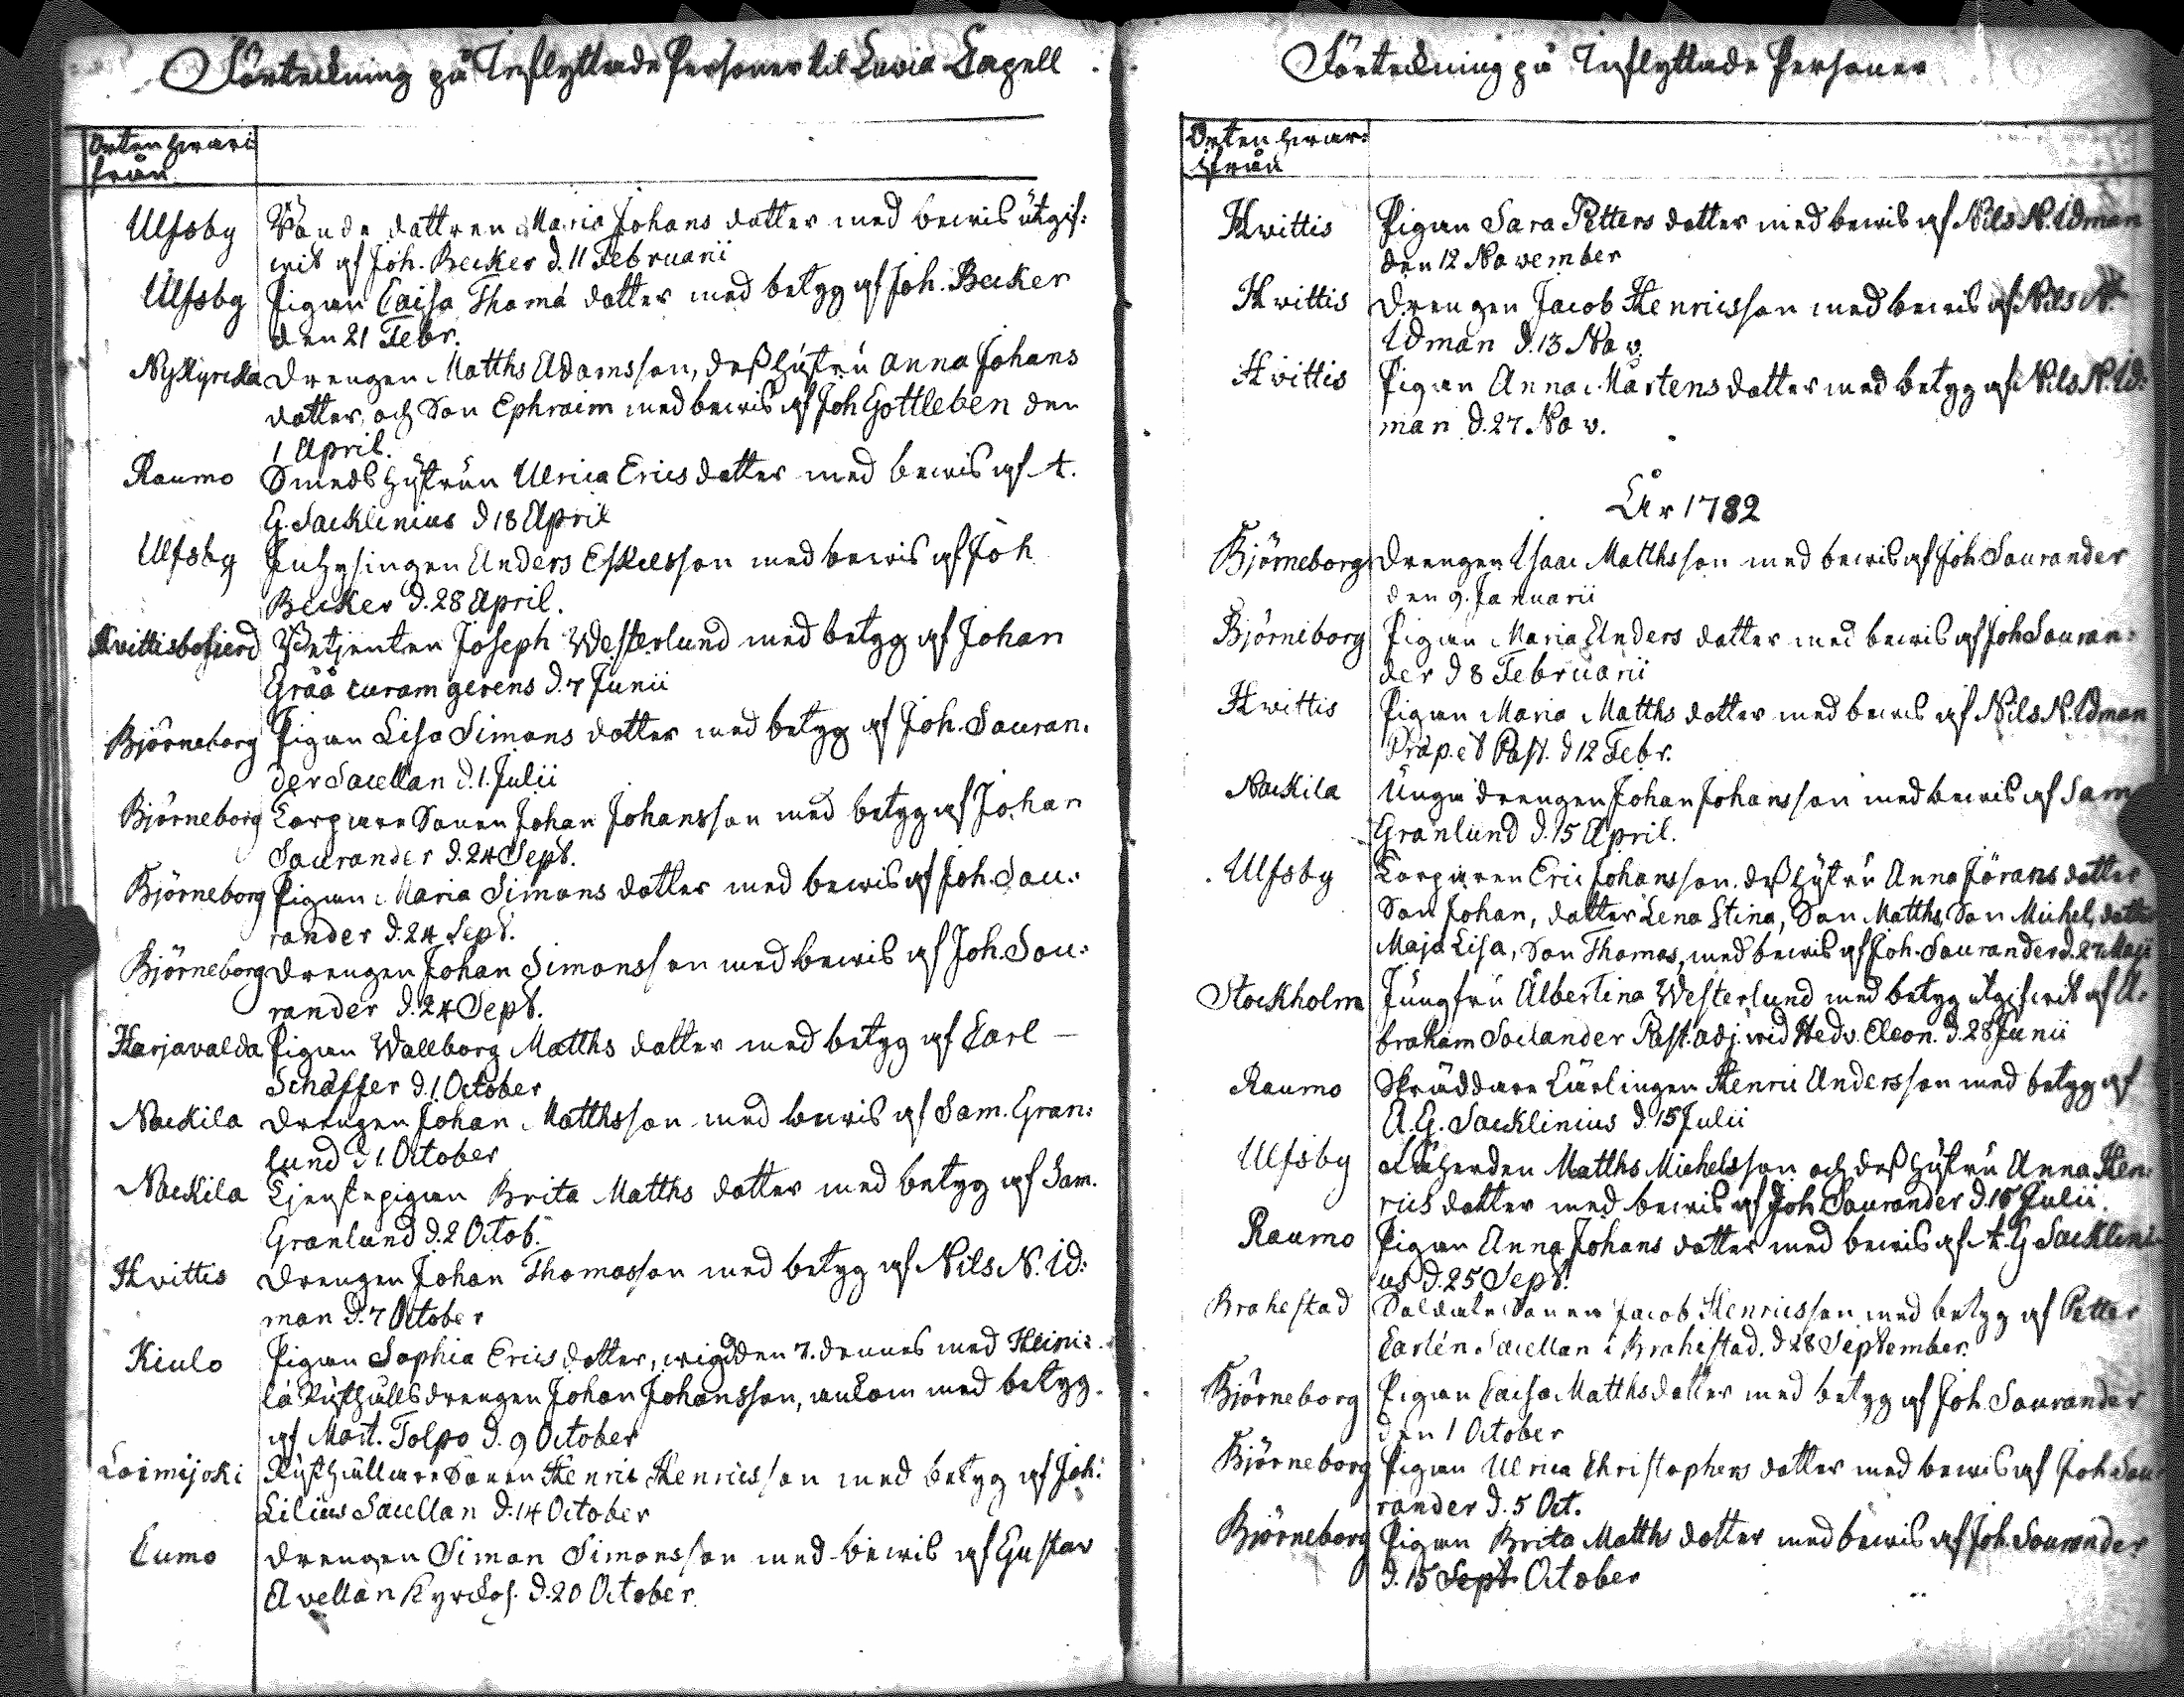 Förteckning på Inflyttade Personer til Luvia Capell
Orten hvari
från
Ulfsby Bonde dottren Maria Johans dotter med bewis utgif:
wit af Joh. Becker d. 11 Februarii
Ulfsby Pigan Caisa Thomä dotter med betyg af Joh. Becker
den 21 Febr.
Nykyrcka Drengen Matths Adamsson, dess hustru Anna Johans
dotter och Son Ephraim med bewis af Joh Gottleben den
1 April.
Raumo Smeds hustrun Ulrica Erics dotter med bewis af A.
G. Sacklinius d 18 April
Ulfsby Inhysingen Anders Eskelsson med bewis af Joh
Becker d. 28 April.
Hvittisbofierd Betjenten Joseph Westerlund med betyg af Johan
Gråå curam gerens d. 7 Junii
Björneborg Pigan Lisa Simons dotter med betyg af Joh. Sauran:
der Sacellan d. 1. Julii
Björneborg Torpare Sonen Johan Johansson med betyg af Johan
Saurander d. 24 Sept.
Björneborg Pigan Maria Simons dotter med bewis af Joh. Sau:
rander d. 24 Sept.
Björneborg Drengen Johan Simonsson med bewis af Joh. Sau:
rander d. 24 Sept.
Harjavalda Pigan Wallborg Matths dotter med betyg af Carl
Schäffer d. 1 October
Nackila Drengen Johan Matthsson med bewis af Sam. Gran:
lund d 1. October
Nackila Tjenstepigan Brita Matths dotter med betyg af Sam.
Granlund d. 2 Octob.
Hvittis Drengen Johan Thomasson med betyg af Nils N. Id:
man d. 7 October
Kiulo Pigan Sophia Erics dotter, wigd den 7. dennes med Heini:
lä Rusthålls drengen Johan Johansson, ankom med betyg
af Mart. Tolpo d. 9 October
Loimijoki Rusthållare Sonen Henric Henricsson med betyg af Joh:
Lilius Sacellan d. 14 October
Cumo Drengen Simon Simonsson med bewis af Gustav
Avellan Kyrckoh. d. 20 October
Förteckning på Inflyttade Personer
Orten hwar:
ifrån
Hvittis Pigan Sara Petters dotter med bewis af Nils N. Idman
den 12 November
Hvittis Drengen Jacob Henricsson med bewis af Nils N.
Idman d. 13 Nov.
Hvittis Pigan Anna Mårtens dotter med betyg af Nils N. Id:
man d. 27 Nov.
År 1782
Björneborg Drengen Isaac Matthsson med bewis af Joh Saurander
den 9. Januarii
Björneborg Pigan Maria Anders dotter med bewis af Joh Sauran:
der d 8 Februarii
Hvittis Pigan Maria Matths dotter med bewis af Nils N. Idman
Præp. et Past. d 12 Febr.
Nackila Unga drengen Johan Johansson med bewis af Sam
Granlund d. 15 April.
Ulfsby Torparen Eric Johansson, dess hustru Anna Jörans dotter
Son Johan, dotter Lena Stina, Son Matths, Son Michel, dotter
Maja Lisa, Son Thomas, med bewis af Joh. Saurander d. 27 Maji
Stockholm Jungfru Albertina Westerlund med betyg utgifwit af A:
braham Soilander Past. adj. wid Hedv. Eleon. d. 28 Junii
Raumo Skräddare Lärlingen Henric Andersson med betyg af
A. G. Sacklinius d. 15 Julii
Ulfsby Matths Michelsson och dess hustru Anna Hen:
rics dotter med bewis af Joh Saurander d. 16 Julii.
Raumo Pigan Anna Johans dotter med bewis af A. G Sacklini
us d. 25 Sept.
Brahestad Soldate Sonen Jacob Henricsson med betyg af Petter
Carlén Sacellan i Brahestad. d 28 September.
Björneborg Pigan Caisa Matthsdotter med betyg af Joh. Saurander
den 1 October
Björneborg Pigan Ulrica Christophers dotter med bewis af Joh Sau
rander d. 5 Oct.
Björneborg Pigan Brita Matths dotter med bewis af Joh. Saurander
d. 15 Sept October